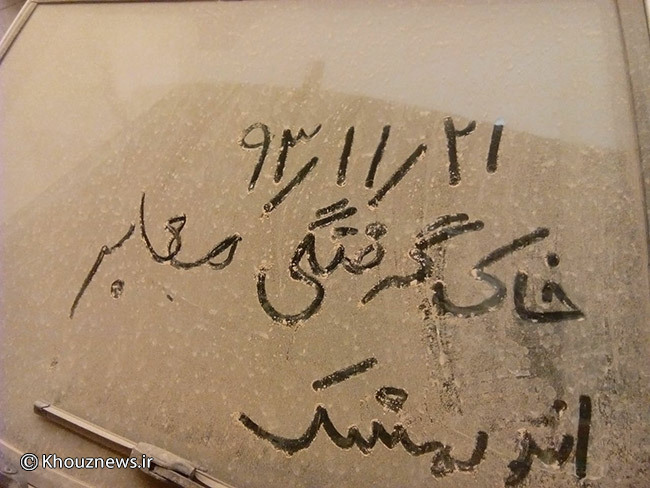 ۹۳/۱۱/۲۱
خاک گرفتگی معابر
اندیمشک
© Khouznews.ir